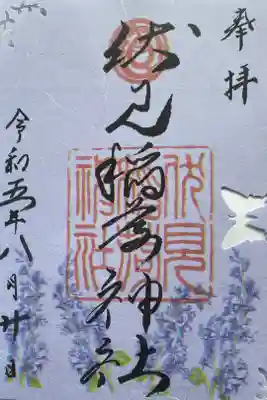 奉拝
伏見稲荷神社
伏見
稲荷
神社
令和五年八月廿日